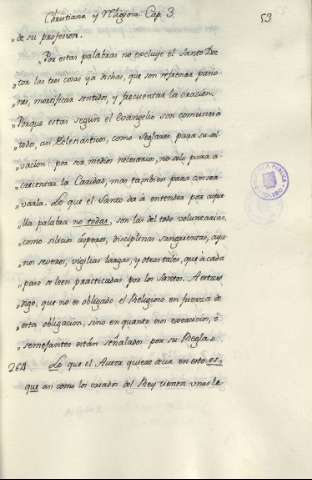 Christiana y Religiosa Cap. 3.
53
„de su profesion.
„Por estas palabras no excluye el Santo Doc
„tor las tres cosas ya dichas, que son refrenar pasio
„nes, mortificar sentidos, y frecuentar la oracion.
„Porque estas segun el Evangelio son comunes a
„todos, asi Eclesiasticos, como Seglares para su sal
„vacion por ser medios necesarios, no solo para a
„crecentar la Caridad, mas tambien para conser
„varla. Lo que el Santo da a entender por aque
„lla palabra no todas, son las del todo voluntarias,
„como silicios asperos, disciplinas sangrientas, ayu
„nos severos, vigilias largas, y otras tales, que a cada
„paso se leen practicadas por los Santos. A estas
„digo, que no es obligado el Religioso en fuerza de
„esta obligacion, sino en quanto sus exercicios, o
„semejantes estan señalados por su Regla.„
264 Lo que el Autor quiere decir en esto es,
que asi como los criados del Rey tienen unos le